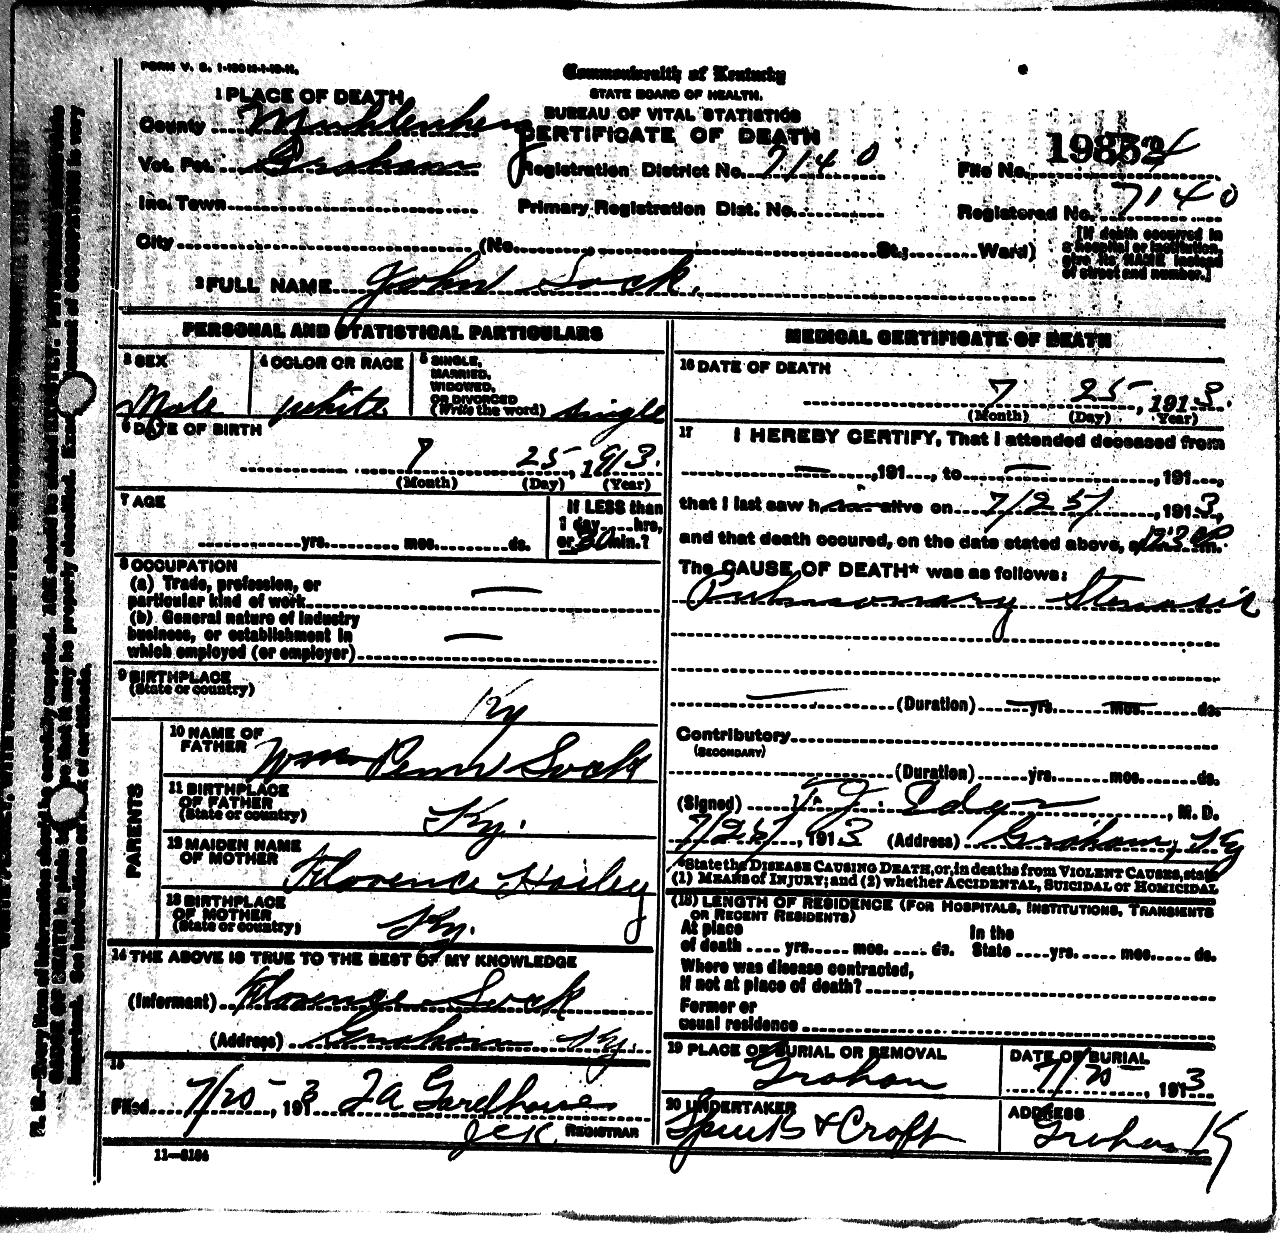 FORM V. S. 1-
Commonwealth of Kentucky
STATE BOARD OF HEALTH.
BUREAU OF VITAL STATISTICS
CERTIFICATE OF DEATH
1 PLACE OF DEATH
County Muhlenberg
Vot. Pct. Graham
Registration District No. 7140
File No.
Inc. Town
Primary Registration Dist. No.
Registered No. 7140
City (No. St.; Ward)
[If death occurred in
a hospital or institution,
give its NAME instead
of street and number.]
2 FULL NAME John Sock.
PERSONAL AND STATISTICAL PARTICULARS
3 SEX
Male
4 COLOR OR RACE
white
5 SINGLE,
MARRIED,
WIDOWED,
OR DIVORCED
(Write the word) single
6 DATE OF BIRTH
7 25, 1913.
(Month) (Day) (Year)
7 AGE
yrs. mos. ds.
If LESS than
1 day hrs,
or 30 min.?
8 OCCUPATION
(a) Trade, profession, or
particular kind of work —
(b) General nature of industry
business, or establishment in
which employed (or employer) —
9 BIRTHPLACE
(State or country)
Ky
PARENTS
10 NAME OF
FATHER Wm Penn Sock
11 BIRTHPLACE
OF FATHER
(State or country) Ky.
12 MAIDEN NAME
OF MOTHER Florence Hosley
13 BIRTHPLACE
OF MOTHER
(State or country) Ky.
14 THE ABOVE IS TRUE TO THE BEST OF MY KNOWLEDGE
(Informant) Florence Sock
(Address) Graham Ky.
15
Filed 7/25, 1913 Gardhouse
REGISTRAR
11—6184
MEDICAL CERTIFICATE OF DEATH
16 DATE OF DEATH
7 25, 1913.
(Month) (Day) (Year)
17 I HEREBY CERTIFY, That I attended deceased from
—, 191, to —, 191,
that I last saw him alive on 7/25/, 1913,
and that death occured, on the date stated above, at 12:30 P m.
The CAUSE OF DEATH* was as follows:
Pulmonary Stenosis
(Duration) yrs. mos. ds.
Contributory
(SECONDARY)
(Duration) yrs. mos. ds.
(Signed) M. D.
7/25/, 1913 (Address) Graham, Ky
*State the DISEASE CAUSING DEATH, or, in deaths from VIOLENT CAUSES, state
(1) MEANS of INJURY; and (2) whether ACCIDENTAL, SUICIDAL or HOMICIDAL
(18) LENGTH OF RESIDENCE (FOR HOSPITALS, INSTITUTIONS, TRANSIENTS
OR RECENT RESIDENTS)
At place
of death yrs. mos. ds.
In the
State yrs. mos. ds.
Where was disease contracted,
if not at place of death?
Former or
usual residence
19 PLACE OF BURIAL OR REMOVAL
Graham
DATE OF BURIAL
7/25, 1913
20 UNDERTAKER
& Croft
ADDRESS
Graham Ky